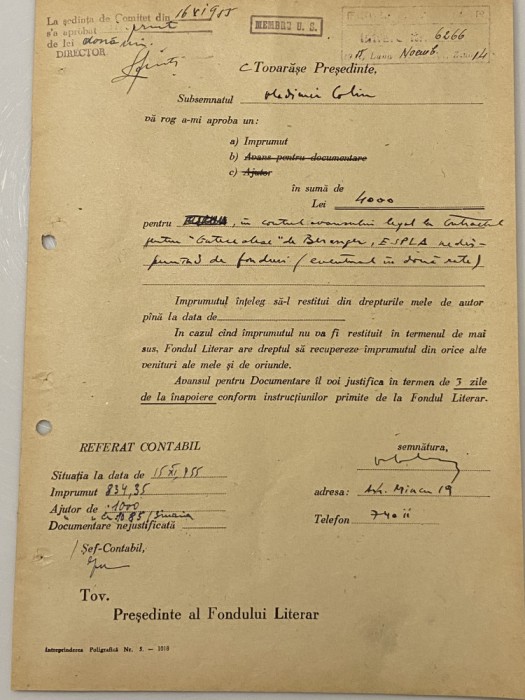 La ședința de Comitet din 16 XI 955
s'a aprobat
de lei două mii
DIRECTOR
MEMBRU U. S.
Nr. 6266
Luna Noemb. Ziua 14
Tovarășe Președinte,
Subsemnatul Vladimir Colin
vă rog a-mi aproba un:
a) Imprumut
b) Avans pentru documentare
c) Ajutor
în sumă de
Lei 4000
pentru în contul avansului legal la contractul
pentru "Cântece alese" de Béranger, ESPLA
de fonduri (eventual în două rate)
Imprumutul înțeleg să-l restitui din drepturile mele de autor
pînă la data de
In cazul cînd împrumutul nu va fi restituit în termenul de mai
sus, Fondul Literar are dreptul să recupereze împrumutul din orice alte
venituri ale mele și de oriunde.
Avansul pentru Documentare îl voi justifica în termen de 3 zile
de la înapoiere conform instrucțiunilor primite de la Fondul Literar.
REFERAT CONTABIL
semnătura,
Situația la data de 15 XI 955
Imprumut 834,35
adresa: Ath. Enăcu 19
Ajutor de 1000
Sinaia
Documentare nejustificată
Telefon
Șef-Contabil,
Tov.
Președinte al Fondului Literar
Intreprinderea Poligrafică Nr. 2. — 1010